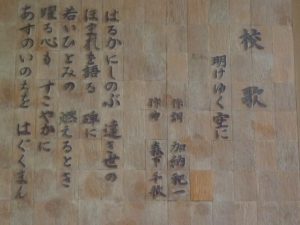 校歌
明けゆく空に
作詞 加納 一
作曲 森 千秋
はるかにしのぶ 遠き世の
ほまれを語る 碑に
若いひとみの 燃えるとき
躍る心も すこやかに
あすのいのちを はぐくまん